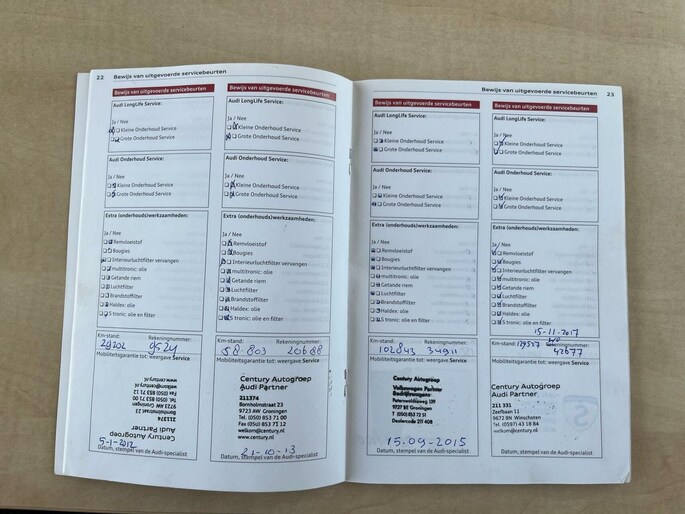 22 Bewijs van uitgevoerde servicebeurten
Bewijs van uitgevoerde servicebeurten
Audi LongLife Service:
Ja / Nee
Kleine Onderhoud Service
Grote Onderhoud Service
Audi Onderhoud Service:
Ja / Nee
Kleine Onderhoud Service
Grote Onderhoud Service
Extra (onderhouds)werkzaamheden:
Ja / Nee
Remvloeistof
Bougies
Interieurluchtfilter vervangen
multitronic: olie
Getande riem
Luchtfilter
Brandstoffilter
Haldex: olie
S tronic: olie en filter
Km-stand: Rekeningnummer:
29202 9524
Mobiliteitsgarantie tot: weergave Service
Century Autogroep
Audi Partner
211374
Bornholmstraat 23
9723 AW Groningen
Tel. (050) 853 71 00
Fax (050) 853 71 12
welkom@century.nl
www.century.nl
5-1-2012
Datum, stempel van de Audi-specialist
Bewijs van uitgevoerde servicebeurten
Audi LongLife Service:
Ja / Nee
Kleine Onderhoud Service
Grote Onderhoud Service
Audi Onderhoud Service:
Ja / Nee
Kleine Onderhoud Service
Grote Onderhoud Service
Extra (onderhouds)werkzaamheden:
Ja / Nee
Remvloeistof
Bougies
Interieurluchtfilter vervangen
multitronic: olie
Getande riem
Luchtfilter
Brandstoffilter
Haldex: olie
S tronic: olie en filter
Km-stand: Rekeningnummer:
58.803 20688
Mobiliteitsgarantie tot: weergave Service
Century Autogroep
Audi Partner
211374
Bornholmstraat 23
9723 AW Groningen
Tel. (050) 853 71 00
Fax (050) 853 71 12
welkom@century.nl
www.century.nl
21-10-13
Datum, stempel van de Audi-specialist
Bewijs van uitgevoerde servicebeurten 23
Bewijs van uitgevoerde servicebeurten
Audi LongLife Service:
Ja / Nee
Kleine Onderhoud Service
Grote Onderhoud Service
Audi Onderhoud Service:
Ja / Nee
Kleine Onderhoud Service
Grote Onderhoud Service
Extra (onderhouds)werkzaamheden:
Ja / Nee
Remvloeistof
Bougies
Interieurluchtfilter vervangen
multitronic: olie
Getande riem
Luchtfilter
Brandstoffilter
Haldex: olie
S tronic: olie en filter
Km-stand: Rekeningnummer:
102843 34911
Mobiliteitsgarantie tot: weergave Service
Century Autogroep
Volkswagen Partner
Bedrijfswagens
9727 BE Groningen
Dealercode 211 408
15.09-2015
Datum, stempel van de Audi-specialist
Bewijs van uitgevoerde servicebeurten
Audi LongLife Service:
Ja / Nee
Kleine Onderhoud Service
Grote Onderhoud Service
Audi Onderhoud Service:
Ja / Nee
Kleine Onderhoud Service
Grote Onderhoud Service
Extra (onderhouds)werkzaamheden:
Ja / Nee
Remvloeistof
Bougies
Interieurluchtfilter vervangen
multitronic: olie
Getande riem
Luchtfilter
Brandstoffilter
Haldex: olie
S tronic: olie en filter
15-11-2017
Km-stand: Rekeningnummer:
42677
Mobiliteitsgarantie tot: weergave Service
Century Autogroep
Audi Partner
211 331
Zeefbaan 11
9672 BN Winschoten
Tel. (0597) 43 18 84
welkom@century.nl
Datum, stempel van de Audi-specialist